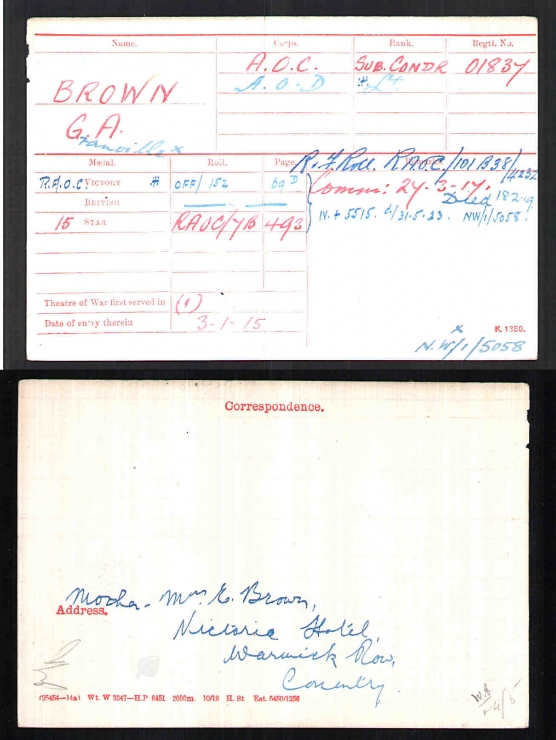 Name. Corps. Rank. Regtl. No.
BROWN A.O.C. SUB. CONDR 01837
A.O.D * Lt
G. A.
Granville x
Medal. Roll. Page.
R. & F. Roll. R.A.O.C./101 B38/
R.A.O.C VICTORY * OFF/ 152 69 D Comm: 24-3-17.
Died 18.2.19
BRITISH —„— —„— N. + 5515. d/31.5.23. NW/1/5058.
15 STAR RAOC/7B 493
Theatre of War first served in (1)
Date of entry therein 3-1-15
K. 1380.
x
N.W/1/5058
Correspondence.
Mother - Mrs E. Brown,
Address.
Victoria Hotel,
Warwick Row,
Coventry.
(25454—14a) Wt. W 3347—H.P 6451 2000m. 10/19 H. St Est. 5450/1256